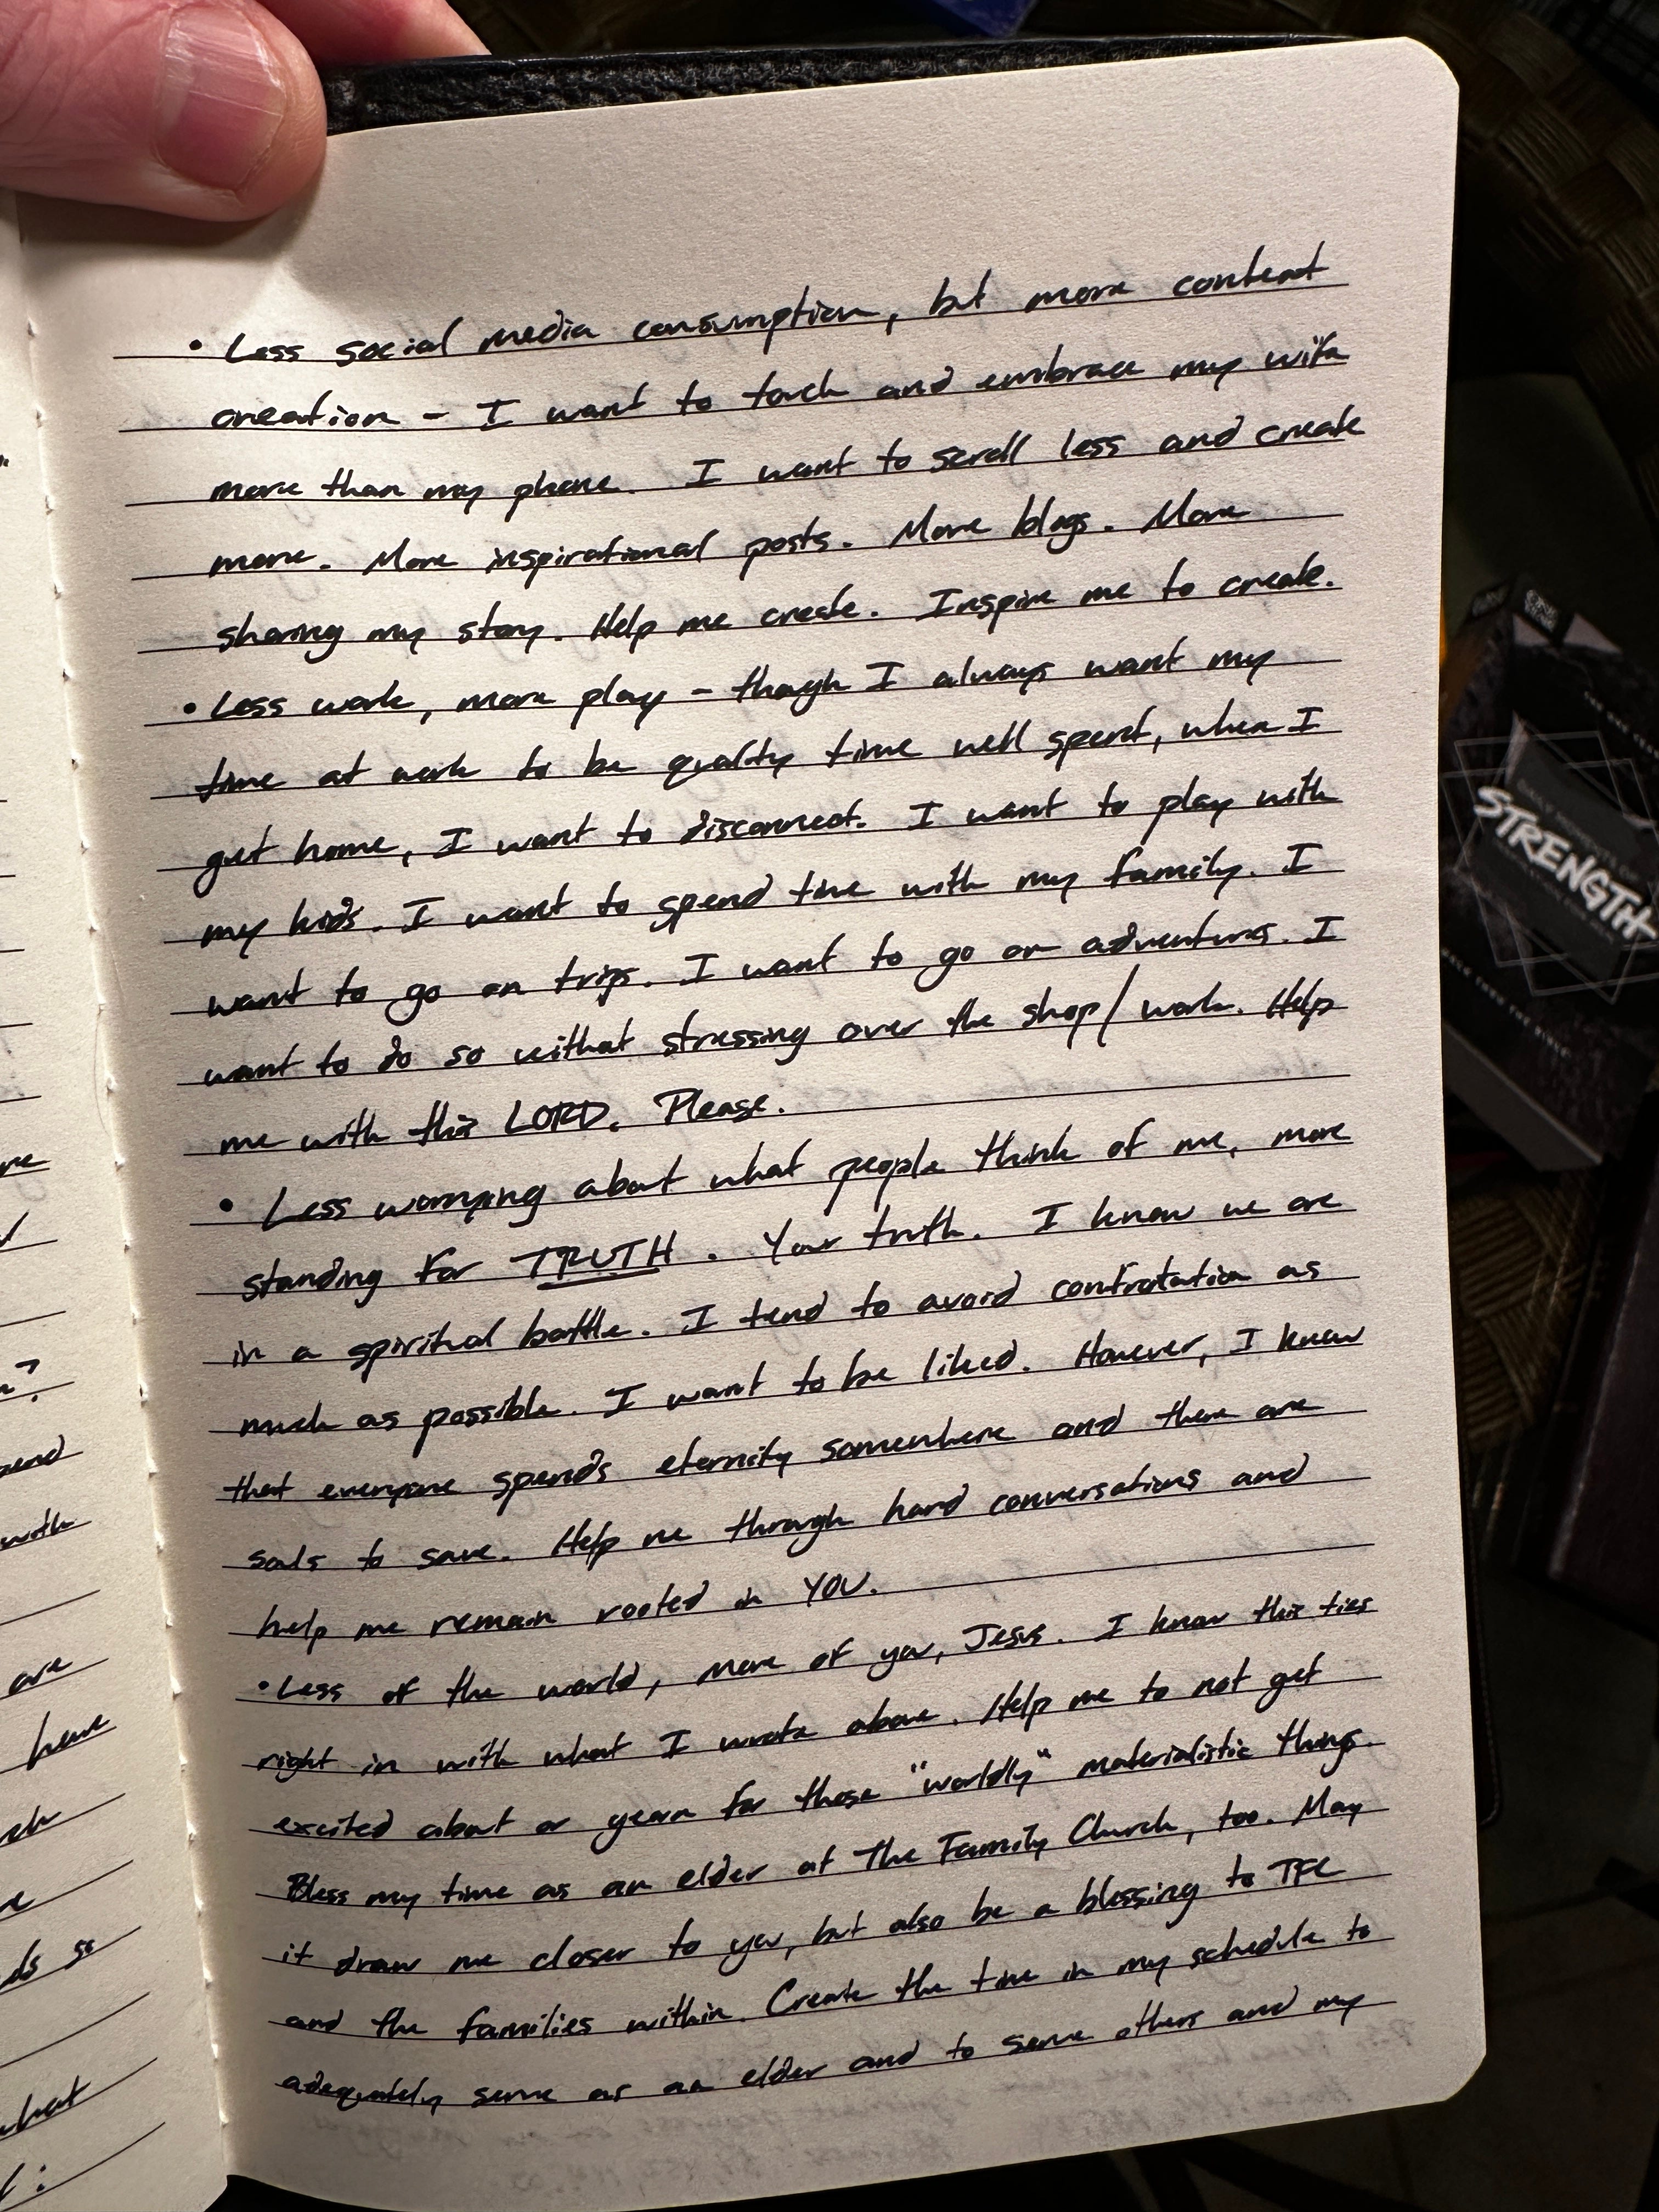 • Less social media consumption, but more content
creation – I want to touch and embrace my wife
more than my phone. I want to scroll less and create
more. More inspirational posts. More blogs. More
sharing my story. Help me create. Inspire me to create.
• Less work, more play – though I always want my
time at work to be quality time well spent, when I
get home, I want to disconnect. I want to play with
my kids. I want to spend time with my family. I
want to go on trips. I want to go on adventures. I
want to do so without stressing over the shop/work. Help
me with this LORD. Please.
• Less worrying about what people think of me, more
standing for TRUTH. Your truth. I know we are
in a spiritual battle. I tend to avoid confrotation as
much as possible. I want to be liked. However, I know
that everyone spends eternity somewhere and there are
souls to save. Help me through hard conversations and
help me remain rooted in YOU.
• Less of the world, more of you, Jesus. I know this ties
right in with what I wrote above. Help me to not get
excited about or yearn for those "worldly" materialistic things.
Bless my time as an elder at The Family Church, too. May
it draw me closer to you, but also be a blessing to TFC
and the families within. Create the time in my schedule to
adequately serve as an elder and to serve others and my
are
have
what
with
STRENGTH